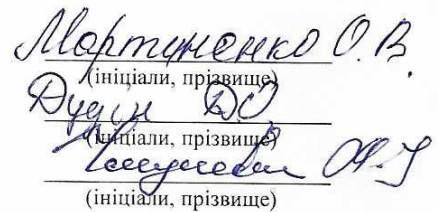 Мартиненко О.В.
(ініціали, прізвище)
Дудін ДО
(ініціали, прізвище)
(ініціали, прізвище)